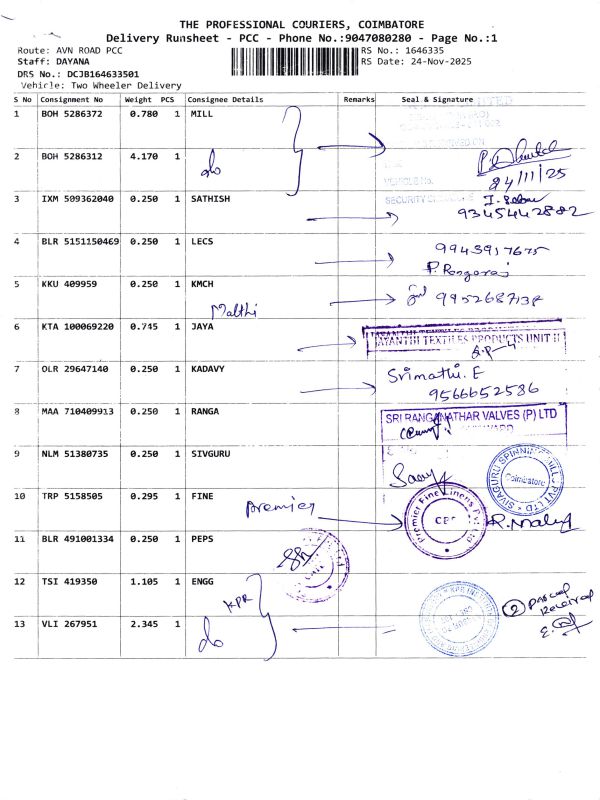 THE PROFESSIONAL COURIERS, COIMBATORE
Delivery Runsheet - PCC - Phone No.:9047080280 - Page No.:1
Route: AVN ROAD PCC RS No.: 1646335
Staff: DAYANA RS Date: 24-Nov-2025
DRS No.: DCJB164633501
Vehicle: Two Wheeler Delivery
S No Consignment No Weight PCS Consignee Details Remarks Seal & Signature
1 BOH 5286372 0.780 1 MILL
2 BOH 5286312 4.170 1 do
VEHICLE No.
24/11/25
3 IXM 509362040 0.250 1 SATHISH
SECURITY
9345442882
4 BLR 5151150469 0.250 1 LECS 9943917675
P. Rangaraj
5 KKU 409959 0.250 1 KMCH 9952687138
Malthi
6 KTA 100069220 0.745 1 JAYA JAYANTHI TEXTILES PRODUCTS UNIT II
7 OLR 29647140 0.250 1 KADAVY Srimathi. E
9566652586
8 MAA 710409913 0.250 1 RANGA SRI RANGANATHAR VALVES (P) LTD
9 NLM 51380735 0.250 1 SIVGURU SIVAGURU SPINNING MILLS PVT LTD
Coimbatore
10 TRP 5158505 0.295 1 FINE Premier Premier Fine Linens Pvt Ltd
CBE
11 BLR 491001334 0.250 1 PEPS
12 TSI 419350 1.105 1 ENGG KPR
2 parcel
Received
13 VLI 267951 2.345 1 do